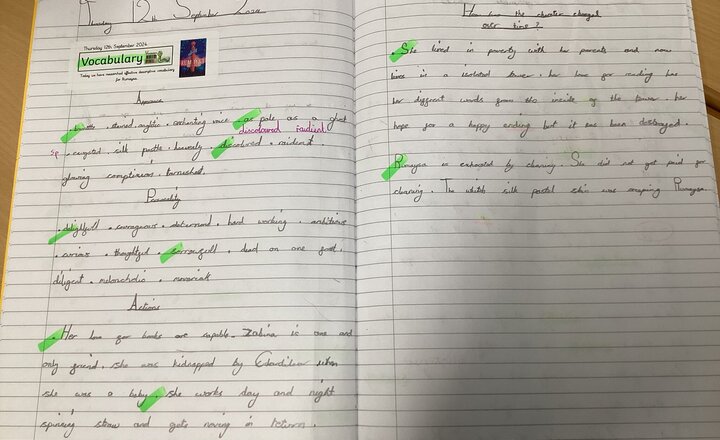 Thursday 12th September 2024
Thursday 12th September 2024
Vocabulary
Today we have researched effective descriptive vocabulary
for Rumaysa.
Appearance
. enchanting voice . as pale as a ghost
discoloured raidient
sp . silk pastle . discolored . raidient
glowing tarnished.
Personality
. delightfull . couragous . determend . hard working . ambitious
. curious . thoughtful . sorrowfull . dead on one goal.
diligent . melancholic .
Actions
. Her love for books are capable. Zabina is one and
only friend. she was kidnapped by when
she was a baby. she works day and night
spinning straw and gets noving in return.
How has the character changed
over time?
. She lived in poverty with her parents and now
lives in a isolated tower. her love for reading has
her different words from the inside of the tower. her
hope for a happy ending but it has been destroyed.
Rumaysa is exhausted by cleaning. She did not get paid for
cleaning. The silk pastel skin was Rumaysa.